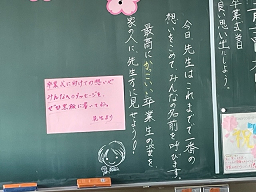 良い思い出にしよう。
今日先生は、これまでで一番の
想いをこめてみんなの名前を呼びます。
最高にかっこいい卒業生の姿を、
家の人に、先生方に見せよう!
卒業式に向けての想いや
みんなへのメッセージを、
ぜひ黒板に書いてね。
先生より